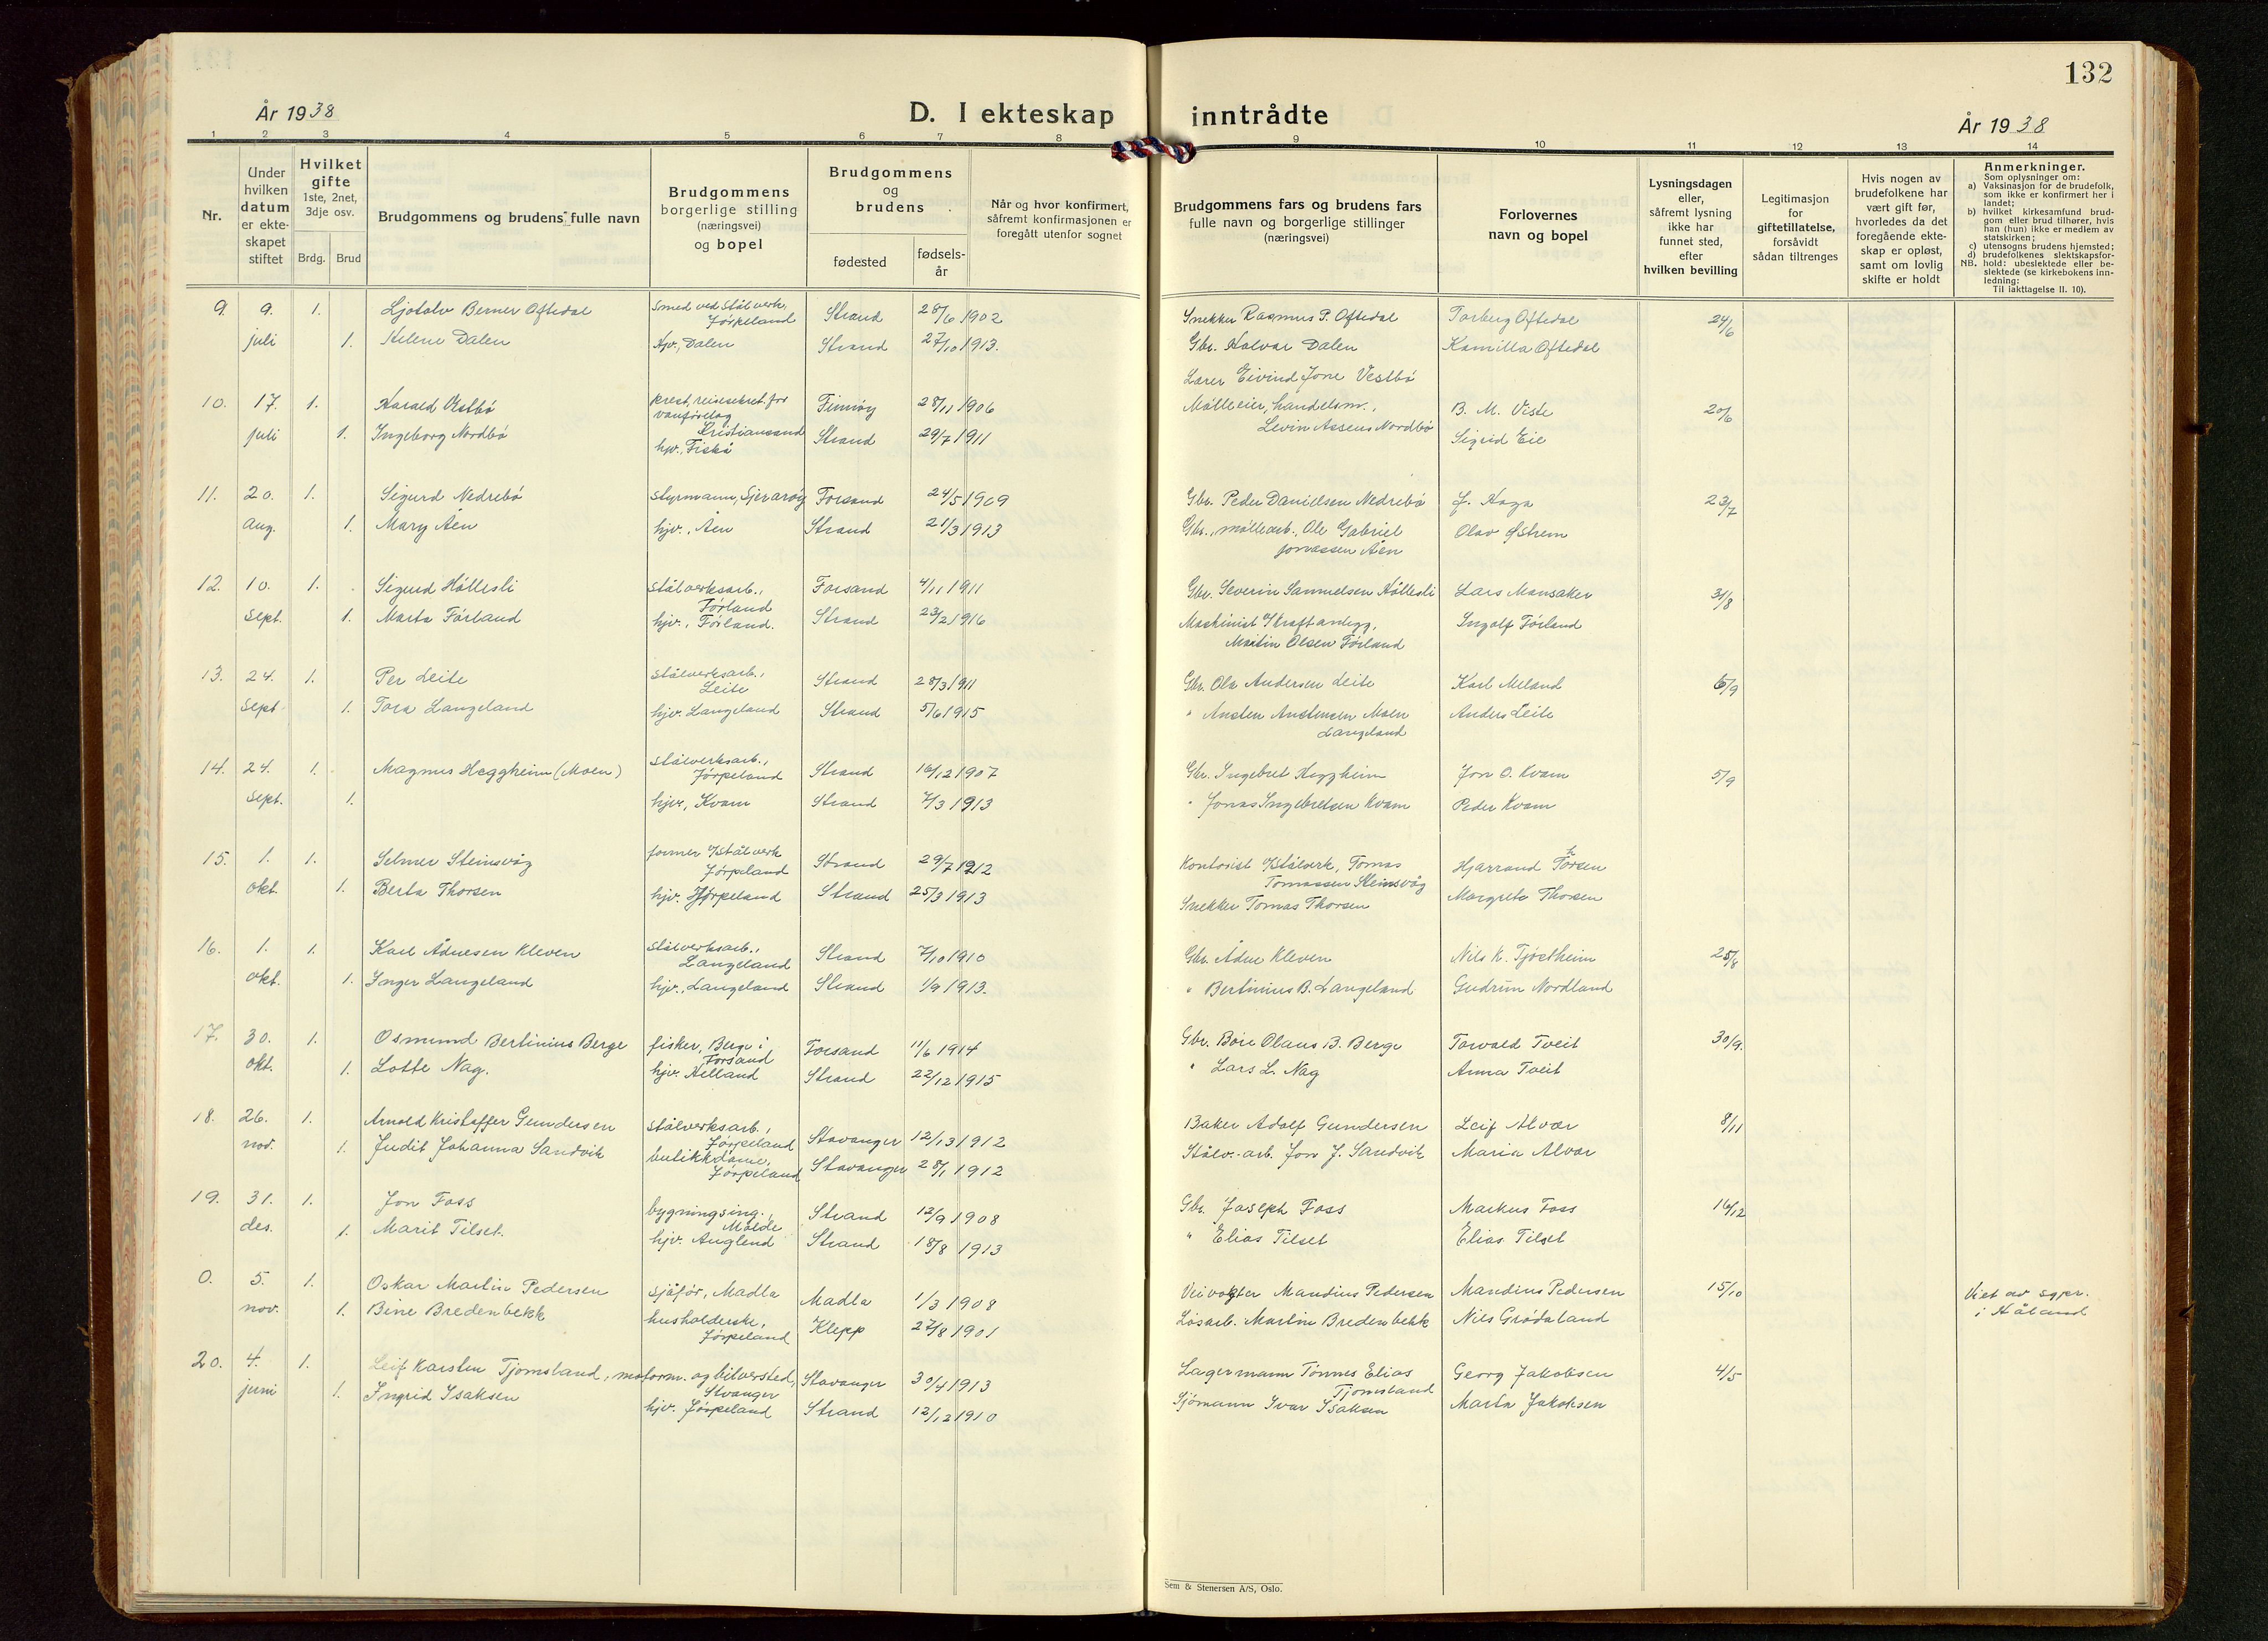 132
År 1938
D. I ekteskap inntrådte
År 1938
1 2 3 4 5 6 7 8 9 10 11 12 13 14
Nr.
Under hvilken datum er ekte-skapet stiftet
Hvilket gifte
1ste, 2net, 3dje osv.
Brdg. Brud
Brudgommens og brudens fulle navn
Brudgommens borgerlige stilling (næringsvei) og bopel
Brudgommens og brudens
fødested
fødsels-år
Når og hvor konfirmert, såfremt konfirmasjonen er foregått utenfor sognet
Brudgommens fars og brudens fars fulle navn og borgerlige stillinger (næringsvei)
Forlovernes navn og bopel
Lysningsdagen eller, såfremt lysning ikke har funnet sted, efter hvilken bevilling
Legitimasjon for giftetillatelse, forsåvidt sådan tiltrenges
Hvis nogen av brudefolkene har vært gift før, hvorledes da det foregående ekte-skap er opløst, samt om lovlig skifte er holdt
Anmerkninger.
Som oplysninger om:
a) Vaksinasjon for de brudefolk, som ikke er konfirmert her i landet;
b) hvilket kirkesamfund brud-gom eller brud tilhører, hvis han (hun) ikke er medlem av statskirken;
c) utensogns brudens hjemsted;
d) brudefolkenes slektskapsfor-hold: ubeslektede eller be-slektede (se kirkebokens inn-ledning:
NB. Til iakttagelse II. 10).
9. 9. 1. Ljotolv Berner Oftedal smed ved Stålverk, Jørpeland Strand 28/6 1902 Snekker Rasmus P. Oftedal Torberg Oftedal 24/6
juli 1. Helene Dalen hjv., Dalen Strand 27/10 1913. Gbr. Halvar Dalen Kamilla Oftedal
Lærer Eivind Jone Vestbø
10. 17. 1. Harald Vestbø prest, reisesekret. for vanførelag Kristiansand Finnøy 28/11 1906 Mølleeier, handelsm., Levin Assens Nordbø B. M. Viste 20/6
juli 1. Ingeborg Nordbø hjv., Fiskå Strand 29/7 1911 Sigrid Eie
11. 20. 1. Sigurd Nedrebø Styrmann, Sjernarøy Forsand 24/5 1909 Gbr. Peder Danielsen Nedrebø Haga 23/7
aug. 1. Mary Åen hjv., Åen Strand 21/3 1913 Gbr., møllearb., Ole Gabriel Jonassen Åen Olav Østrem
12. 10. 1. Sigurd Høllesli Stålverksarb., Førland Forsand 4/11 1911 Gbr. Severin Samuelsen Høllesli Lars Mansaker 31/8
Sept. 1. Marta Førland hjv., Førland. Strand 23/2 1916 Maskinist v/kraftanlegg, Martin Olsen Førland Ingolf Førland
13. 24. 1. Per Leite Stålverksarb., Leite Strand 28/3 1911 Gbr. Ola Andersen Leite Karl Meland 6/9
Sept. 1. Tora Langeland hjv. Langeland Strand 5/6 1915 " Austen Austensen Moen Langeland Anders Leite
14. 24. 1. Magnus Heggheim (Moen) Stålverksarb., Jørpeland Strand 16/12 1907 Gbr. Ingebret Heggheim Jon O. Kvam 5/9
Sept. 1. hjv., Kvam Strand 7/3 1913 " Jonas Ingebretsen Kvam Peder Kvam
15. 1. 1. Selmer Steinsvåg former v/Stålverk Jørpeland Strand 29/7 1912 Kontorist v/Stålverk, Tomas Tomassen Steinsvåg Hjarrand Thorsen
okt. 1. Berta Thorsen hjv. Jørpeland Strand 25/3 1913 Snekker Tomas Thorsen Margrete Thorsen
16. 1. 1. Karl Ådnesen Kleven Stålverksarb., Langeland Strand 7/10 1910 Gbr. Ådne Kleven Nils K. Tjøstheim 25/8
okt. 1. Inger Langeland hjv., Langeland Strand 1/9 1913. " Bertinius B. Langeland Gudrun Nordland
17. 30. 1. Osmund Bertinius Berge fisker, Berge i Forsand Forsand 11/6 1914 Gbr. Boie Olaus B. Berge Torvald Tveit 30/9.
okt. 1. Lotte Nag. hjv. Helland Strand 22/12 1915 " Lars L. Nag Anna Tveit
18. 26. 1. Arnold Kristoffer Gundersen stålverksarb., Jørpeland Stavanger 12/13 1912 Baker Adolf Gundersen Leif Alvær 8/11
nov. 1. Judit Johanna Sandvik butikkdame, Jørpeland Stavanger 28/1 1912 Stålv.-arb. Jon J. Sandvik Maria Alvær
19. 31. 1. Jon Foss bygningsing., Molde Strand 12/9 1908 Gbr. Joseph Foss Markus Foss 16/12
des. 1. Marit Tilset. hjv. Auglend Strand 18/8 1913 " Elias Tilset Elias Tilset
0. 5. 1. Oskar Martin Pedersen sjåfør, Madla Madla 1/3 1908 Veivokter Mandius Pedersen Mandius Pedersen 15/10 Viet av sgpr. i Håland
nov. 1. Bine Bredenbekk husholderske, Jørpeland Klepp 27/8 1901 Løsarb. Martin Bredenbekk Nils Grødaland
20. 4. 1. Leif Karsten Tjomsland, motorm. og bilversted, Stvanger Stavanger 30/4 1913 Lagermann Tønnes Elias Tjomsland Georg Jakobsen 4/5
juni 1. Ingrid Isaksen hjv. Jørpeland Strand 12/12 1910 Sjømann Ivar Isaksen Marta Jakobsen
Sem & Stenersen A/S, Oslo.